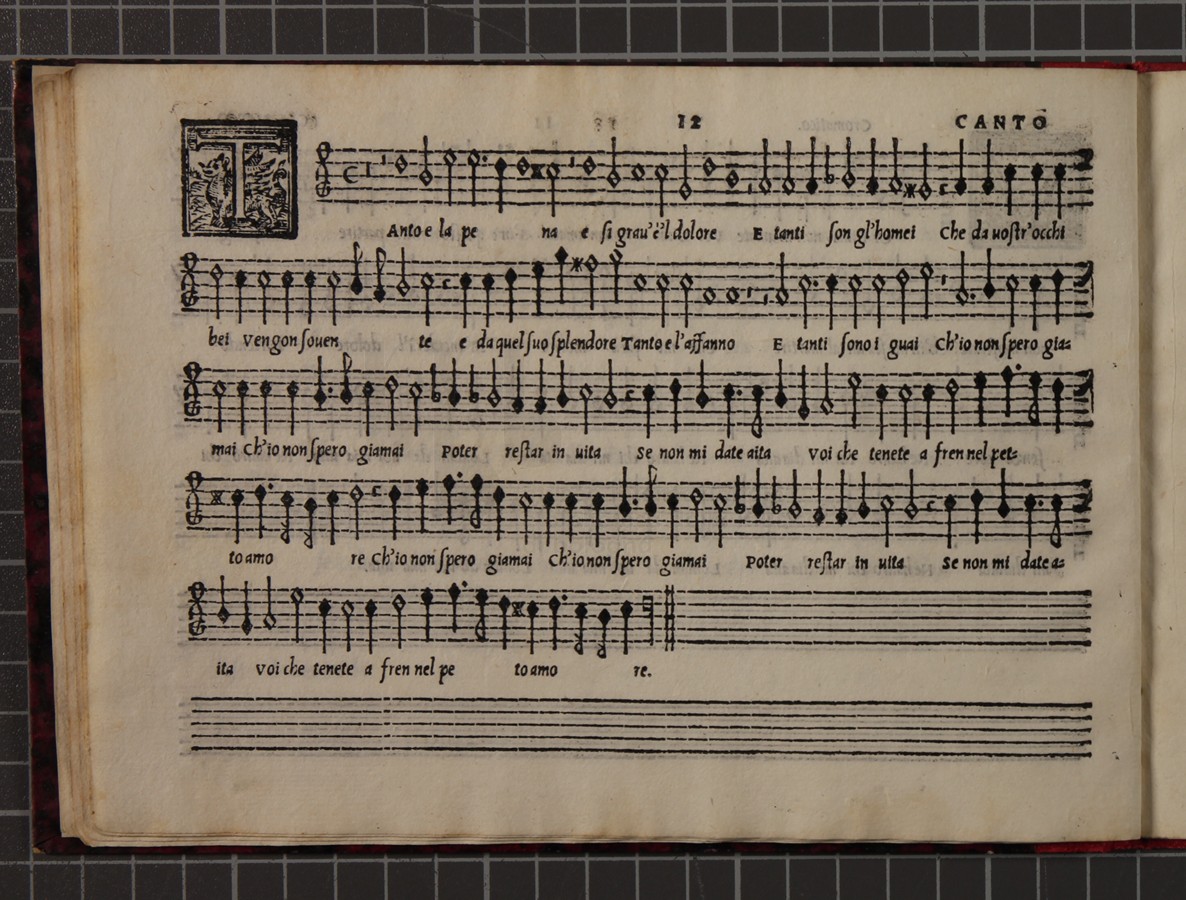 12 CANTO
TAnto e la pe na e si grau'è'l dolore E tanti son gl'homei Che da uostr'occhi
bei vengon souen te e da quel suo splendore Tanto e l'affanno E tanti sono i guai Ch'io non spero gia=
mai Ch'io non spero giamai Poter restar in uita Se non mi date aita Voi che tenete a fren nel pet=
to amo re Ch'io non spero giamai Ch'io non spero giamai Poter restar in uita Se non mi date a=
ita Voi che tenete a fren nel pe to amo re.